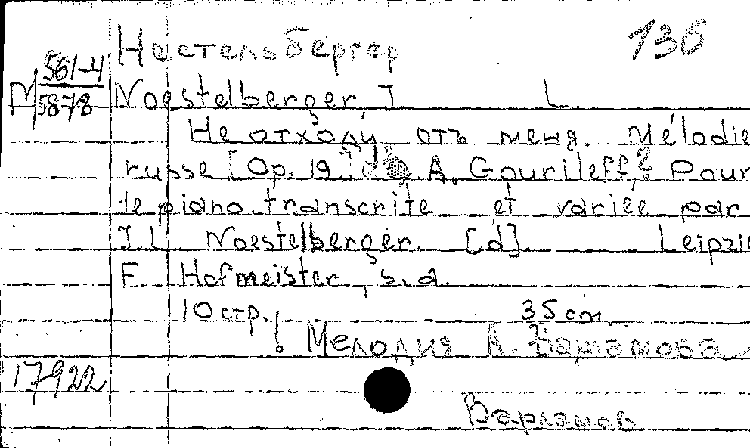 Нестельбергер 135
М 561-4
5878
Noestelberger, J. L.
Не отходи отъ меня. Mélodie
russe [Op. 19.] de A. Gourileff? Pour
le piano transcrite et variée par
J. L. Noestelberger. [d]. Leipzi
F. Hofmeister, s. a.
10 стр. 35 см.
! Мелодия А. Варламова
17922
Варламов